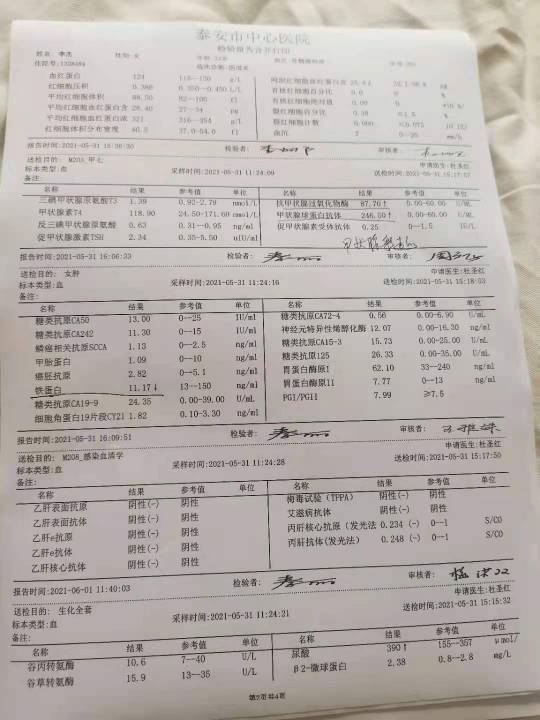 泰安市中心医院
检验报告合并打印
姓名: 李杰 性别:女
住院号:1328484
血红蛋白 124 115--150 g/L
红细胞压积 0.386 0.350--0.450 L/L
平均红细胞体积 82--100 fl
平均红细胞血红蛋白含 28.40 27--34 pg
平均红细胞血红蛋白浓 321 316--354 g/L
红细胞体积分布宽度 40.3 37.0-54.0 fl
有核红细胞百分比 0.0
有核红细胞绝对值 0.00
血沉 2 0--20 mm/h
报告时间:2021-05-31 15:36:30 检验者: 审核者:
送检目的: M203_甲七 采样时间:2021-05-31 11:24:09 送检时间:2021-05-31 15:17:57
标本类型:血
备注:
名称 结果 参考值 单位 名称 结果 参考值 单位
三碘甲状腺原氨酸T3 1.39 0.92-2.79 nmol/L 抗甲状腺过氧化物酶 87.70↑ 0.00-60.00 U/ML
甲状腺素T4 118.90 24.50-171.00 nmol/L 甲状腺球蛋白抗体 246.50↑ 0.00-60.00 U/ML
反三碘甲状腺原氨酸 0.63 0.31--0.95 ng/ml 促甲状腺素受体抗体 0.25 0--1.5 IU/L
促甲状腺激素TSH 2.34 0.35-5.50 uIU/ml
报告时间:2021-05-31 16:06:33 检验者: 审核者:
送检目的: 女肿 采样时间:2021-05-31 11:24:16 申请医生:杜圣红
标本类型:血 送检时间:2021-05-31 15:18:03
备注:
名称 结果 参考值 单位 名称 结果 参考值 单位
糖类抗原CA50 13.00 0--25 IU/ml 糖类抗原CA72-4 0.56 0.00-6.90 U/ml
糖类抗原CA242 11.30 0--15 IU/ml 神经元特异性烯醇化酶 12.07 0.00-16.30 ng/ml
鳞癌相关抗原SCCA 1.13 0--2.5 ng/ml 糖类抗原CA15-3 15.73 0.00-25.00 U/ml
甲胎蛋白 1.09 0--10 ng/ml 糖类抗原125 26.33 0.00-35.00 U/ml
癌胚抗原 2.82 0--5.1 ng/ml 胃蛋白酶原I 62.10 33--240 ng/ml
铁蛋白 11.17↓ 13--150 ng/ml 胃蛋白酶原II 7.77 0--13 ng/ml
糖类抗原CA19-9 24.35 0.00-39.00 U/ml PGI/PGII 7.99 ≥7.5
细胞角蛋白19片段CY21 1.82 0.10-3.30 ng/ml
报告时间:2021-05-31 16:09:51 检验者: 审核者:
送检目的: M208_感染血清学 采样时间:2021-05-31 11:24:28 申请医生:杜圣红
标本类型:血 送检时间:2021-05-31 15:17:50
备注:
名称 结果 参考值 单位 名称 结果 参考值 单位
乙肝表面抗原 阴性(-) 阴性 梅毒试验(TPPA) 阴性(-) 阴性
乙肝表面抗体 阴性(-) 阴性 艾滋病抗体 阴性(-) 阴性
乙肝e抗原 阴性(-) 阴性 丙肝核心抗原(发光法 0.234 (-) 0--1 S/CO
乙肝e抗体 阴性(-) 阴性 丙肝抗体(发光法) 0.248 (-) 0--1 S/CO
乙肝核心抗体 阴性(-) 阴性
报告时间:2021-06-01 11:40:03 检验者: 审核者:
送检目的: 生化全套 采样时间:2021-05-31 11:24:21 申请医生:杜圣红
标本类型:血 送检时间:2021-05-31 15:15:32
备注:
名称 结果 参考值 单位 名称 结果 参考值 单位
谷丙转氨酶 10.6 7--40 U/L 尿酸 390↑ 155--357 μmol/
谷草转氨酶 15.9 13--35 U/L β2-微球蛋白 2.38 0.8--2.8 mg/L
第2页共4页